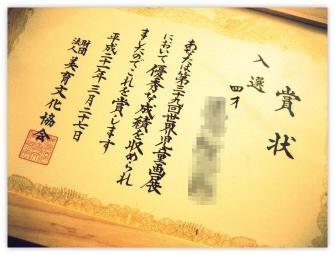 賞状
入選
四才
あなたは第三十九回世界児童画展
において優秀な成績を収められ
ましたのでこれを賞します
平成二十一年三月二十七日
財団法人 美育文化協会